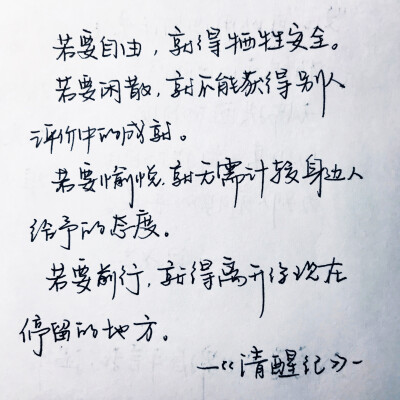 若要自由，就得牺牲安全。
若要闲散，就不能获得别人
评价中的成就。
若要愉悦，就无需计较身边人
给予的态度。
若要前行，就得离开你现在
停留的地方。
—《清醒纪》—